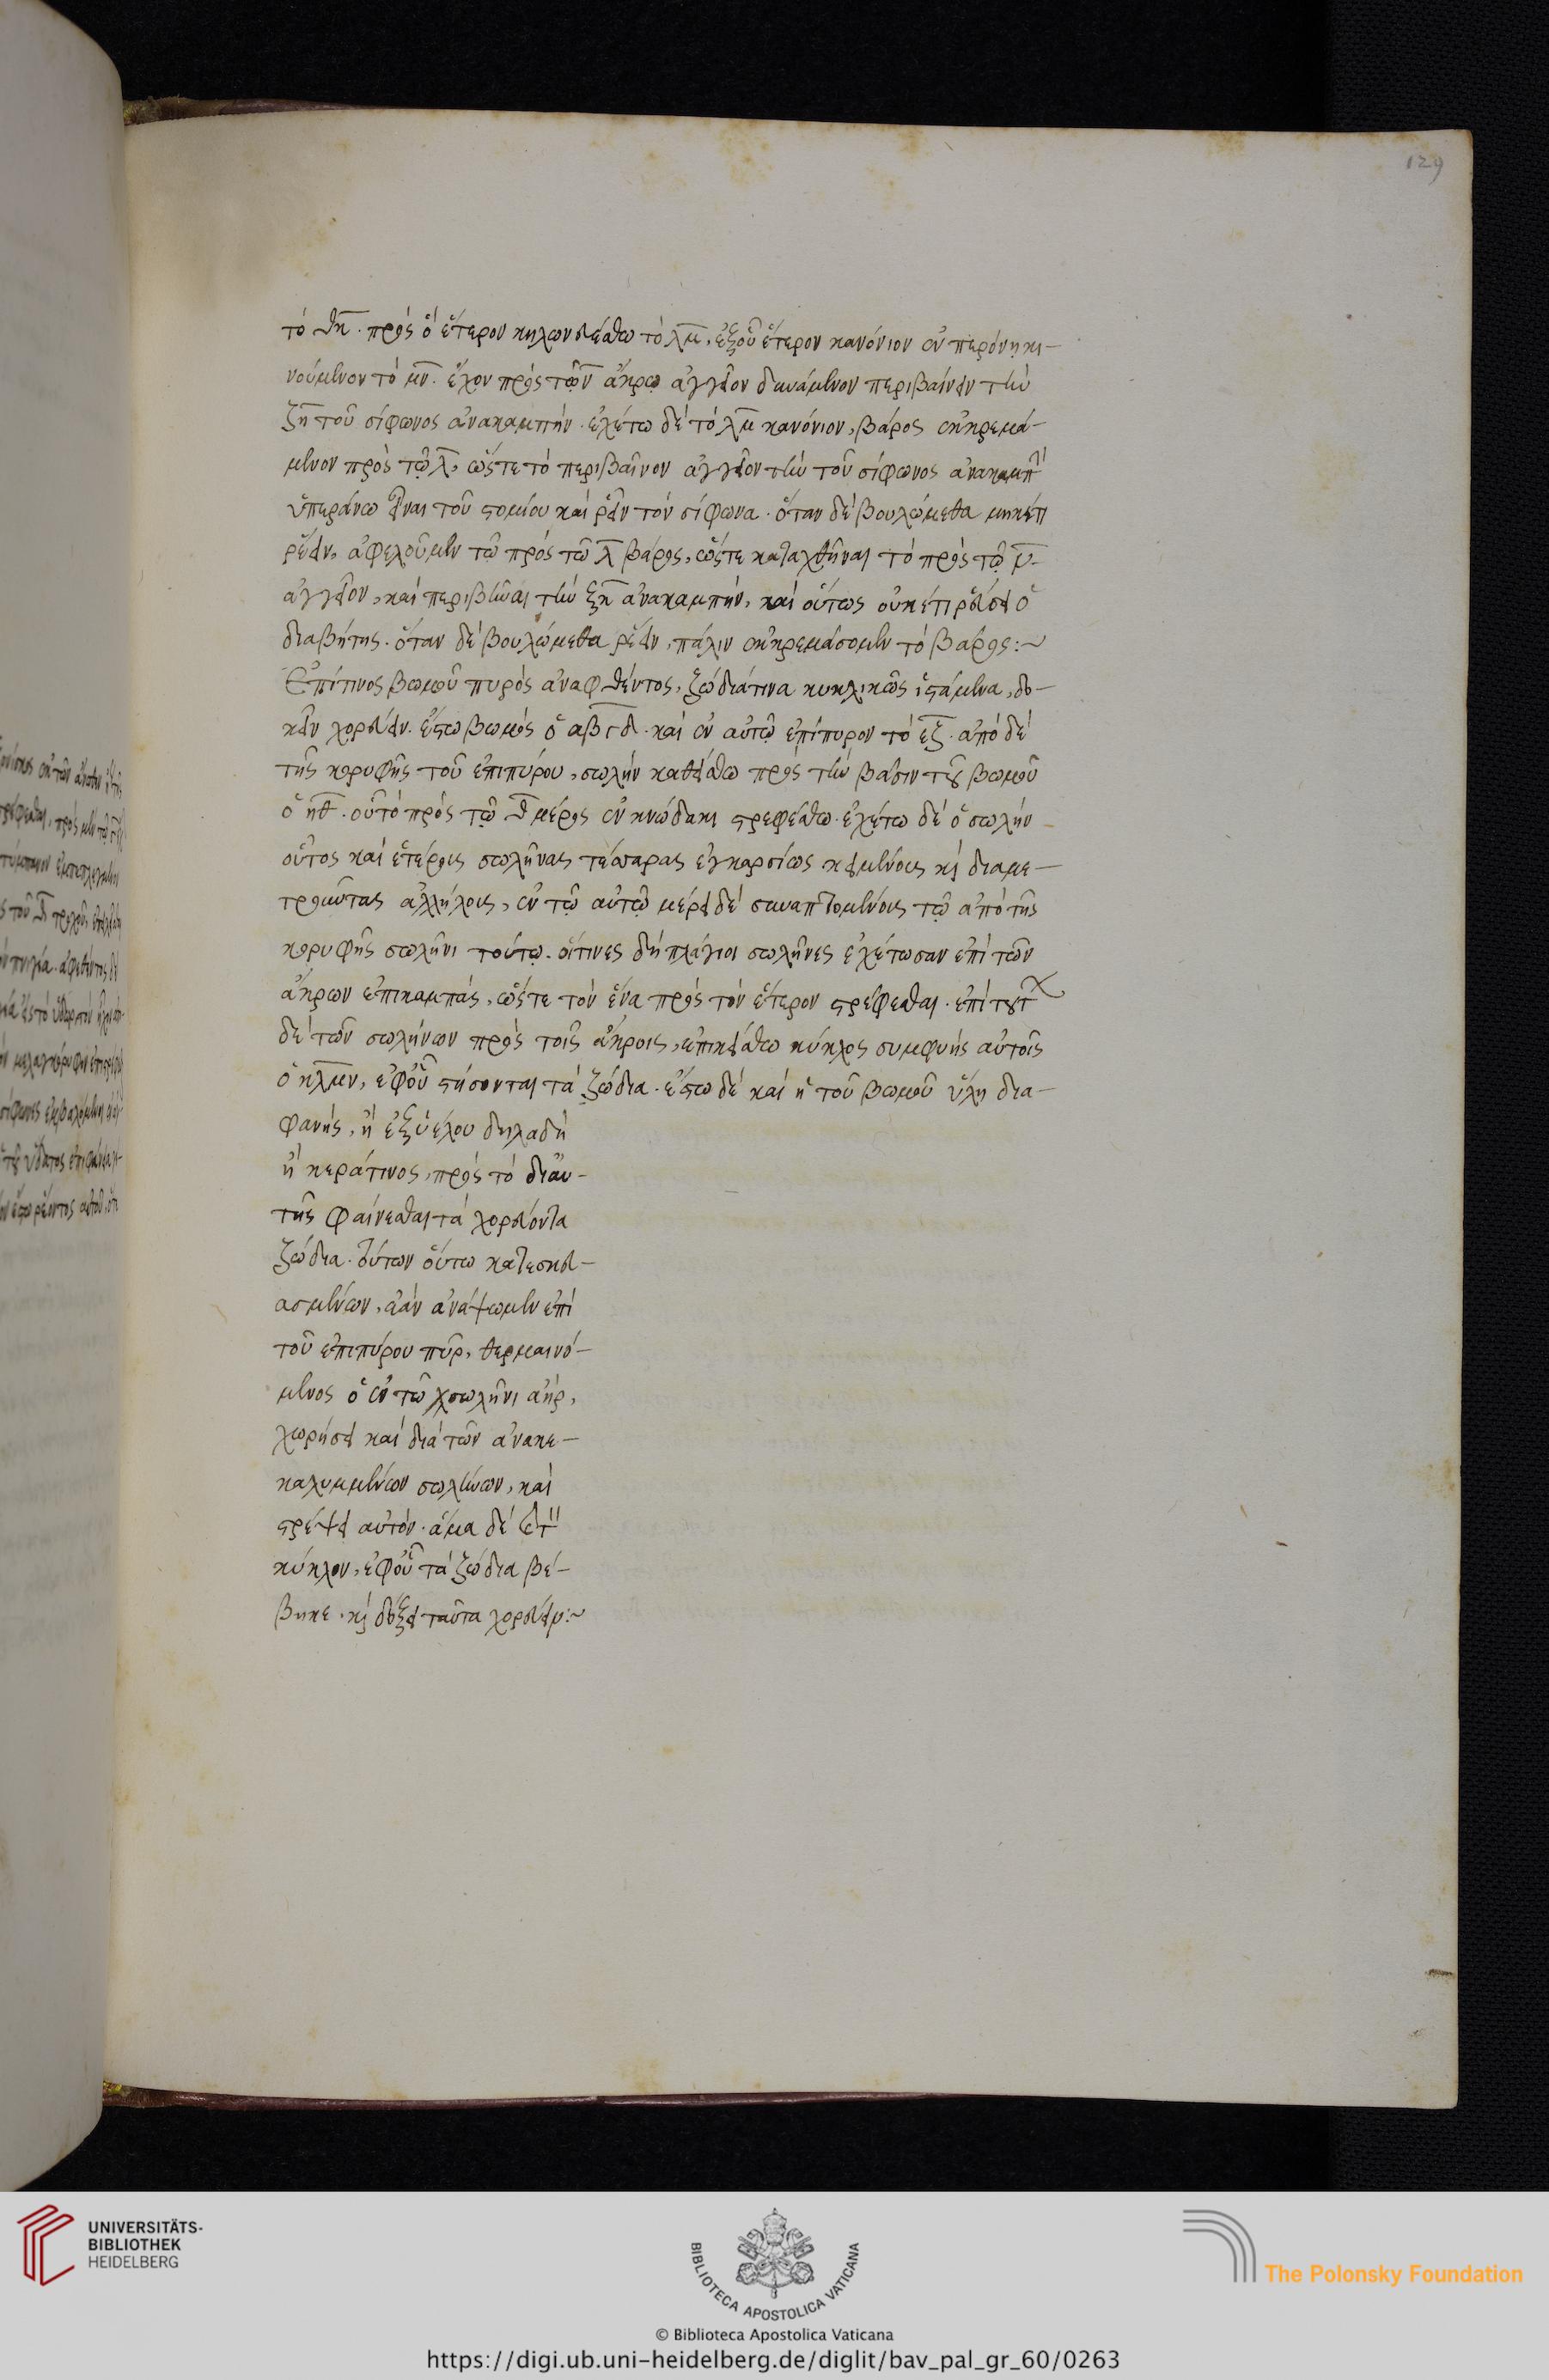 129
τὸ θκ̅. πρὸς ὃ ἕτερον κηλωνευέσθω τὸ λμ̅, ἐξ οὗ ἕτερον κανόνιον ἐν περόνῃ κι-
νούμενον τὸ μν̅. ἔχον πρὸς τῷ ν̅ ἄκρῳ ἀγγεῖον δυνάμενον περιβαίνειν τὴν
ζη̅ τοῦ σίφωνος ἀνακαμπήν. ἐχέτω δὲ τὸ λμ̅ κανόνιον, βάρος ἐκκρεμά-
μενον πρὸς τῷ λ̅, ὥστε τὸ περιβαῖνον ἀγγεῖον τὴν τοῦ σίφωνος ἀνακαμπὴ
ὑπεράνω εἶναι τοῦ στομίου καὶ ῥεῖν τὸν σίφωνα. ὅταν δὲ βουλώμεθα μηκέτι
ῥέειν, ἀφελοῦμεν τῶ πρὸς τῶ λ̅ βάρος, ὥστε καταχθῆναι τὸ πρὸς τῷ ν̅
ἀγγεῖον, καὶ περιβῆναι τὴν ξη̅ ἀνακαμπήν, καὶ οὕτως οὐκέτι ῥεύσει ὁ
διαβήτης. ὅταν δὲ βουλώμεθα ῥέειν, πάλιν ἐκκρεμάσομεν τὸ βάρος:~
Ἐπί τινος βωμοῦ πυρὸς ἀναφθέντος, ζῴδιά τινα κυκλικῶς ἱστάμενα, δο-
κεῖν χορεύειν. ἔστω βωμὸς ὁ αβγδ̅. καὶ ἐν αὐτῷ ἐπίπυρον τὸ εζ̅. ἀπὸ δὲ
τῆς κορυφῆς τοῦ ἐπιπύρου, σωλὴν καθείσθω πρὸς τὴν βάσιν τοῦ βωμοῦ
ὁ ηθ̅. οὗ τὸ πρὸς τῷ θ̅ μέρος ἐν κνώδακι στρεφέσθω. ἐχέτω δὲ ὁ σωλὴν
οὗτος καὶ ἑτέρους σωλῆνας τέσσαρας ἐγκαρσίως κειμένους κὶ διαμε-
τροῦντας ἀλλήλους, ἐν τῷ αὐτῷ μέρει δὲ συναπτομένους τῷ ἀπὸ τῆς
κορυφῆς σωλῆνι τούτῳ. οἵτινες δὴ πλάγιοι σωλῆνες ἐχέτωσαν ἐπὶ τῶν
ἄκρων ἐπικαμπάς, ὥστε τὸν ἕνα πρὸς τὸν ἕτερον στρέφεσθαι. ἐπὶ τούτ
δὲ τῶν σωλήνων πρὸς τοῖς ἄκροις, ἐπικείσθω κύκλος συμφυὴς αὐτοῖς
ὁ κλμν̅, ἐφ οὗ στήσονται τὰ ζώδια. ἔστω δὲ καὶ ἡ τοῦ βωμοῦ ὕλη δια-
φανής, ἢ ἐξ ὑέλου δηλαδὴ
ἢ κεράτινος, πρὸς τὸ δι αὐ-
τῆς φαίνεσθαι τὰ χορεύοντα
ζώδια. τούτων οὕτω κατεσκευ-
ασμένων, ἐὰν ἀνάψωμεν ἐπὶ
τοῦ ἐπιπύρου πῦρ, θερμαινό-
μενος ὁ ἐν τῶ σωλῆνι ἀὴρ,
χωρήσει καὶ διὰ τῶν ἀνακε-
καλυμμένων σωλήνων, καὶ
στρέψει αὐτόν. ἅμα δὲ καὶ τὸν
κύκλον, ἐφ οὗ τὰ ζώδια βέ-
βηκε. κὶ δόξει ταῦτα χορεύειν:~
UNIVERSITÄTS-
BIBLIOTHEK
HEIDELBERG
BIBLIOTECA APOSTOLICA VATICANA
The Polonsky Foundation
© Biblioteca Apostolica Vaticana
https://digi.ub.uni-heidelberg.de/diglit/bav_pal_gr_60/0263